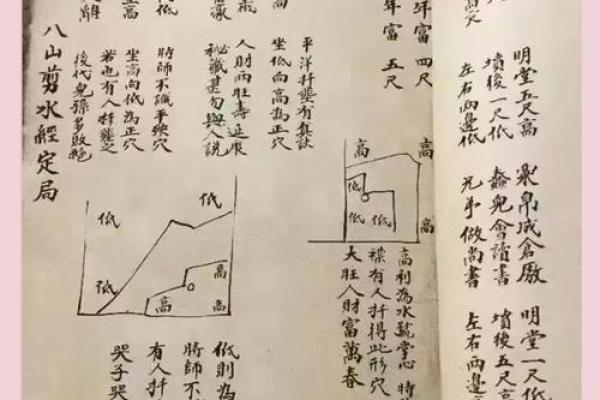 明堂五尺高 泉帛成倉厫 明堂一尺低
墳後一尺低 蠢兒會讀書 墳後五尺高
左右兩邊低 兄弟做尚書 左右兩邊
年富 四尺
年富 五尺
平洋扦塟有真訣
坐低向高為正穴
人財兩旺壽延展
秘藏甚勿與人説
時師不識平殃穴
坐高向低為正穴
若也有人扦塟之
後代兒孫多敗絕
八山剪水經定局
高
高
低
低
低
高
高利為水號堂心 特
襟有人扦得此形穴
大旺人財富萬春
低
低
低
高
高
高
低則為
時師不
有人扦
哭子哭